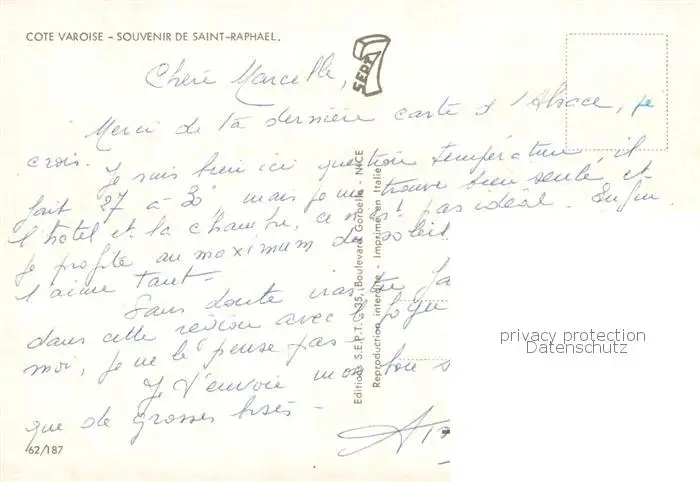 COTE VAROISE - SOUVENIR DE SAINT-RAPHAEL.
SEPT
Chère Marcelle,
Merci de ta dernière carte d'Alsace, je
crois. Je suis bien ici question température, il
fait 27 à 30° mais je me trouve bien seule et
l'hôtel et la chambre, ce n'est pas idéal. Enfin
je profite au maximum du soleil
l'aime tant -
Sans doute iras-tu
dans cette région avec
moi, je ne le pense pas -
Je t'envoie mon
que de grosses bises -
62/187
Editions S.E.P.T.G. 35, Boulevard Gorbella - NICE
Reproduction interdite - Imprimé en Italie
privacy protection
Datenschutz